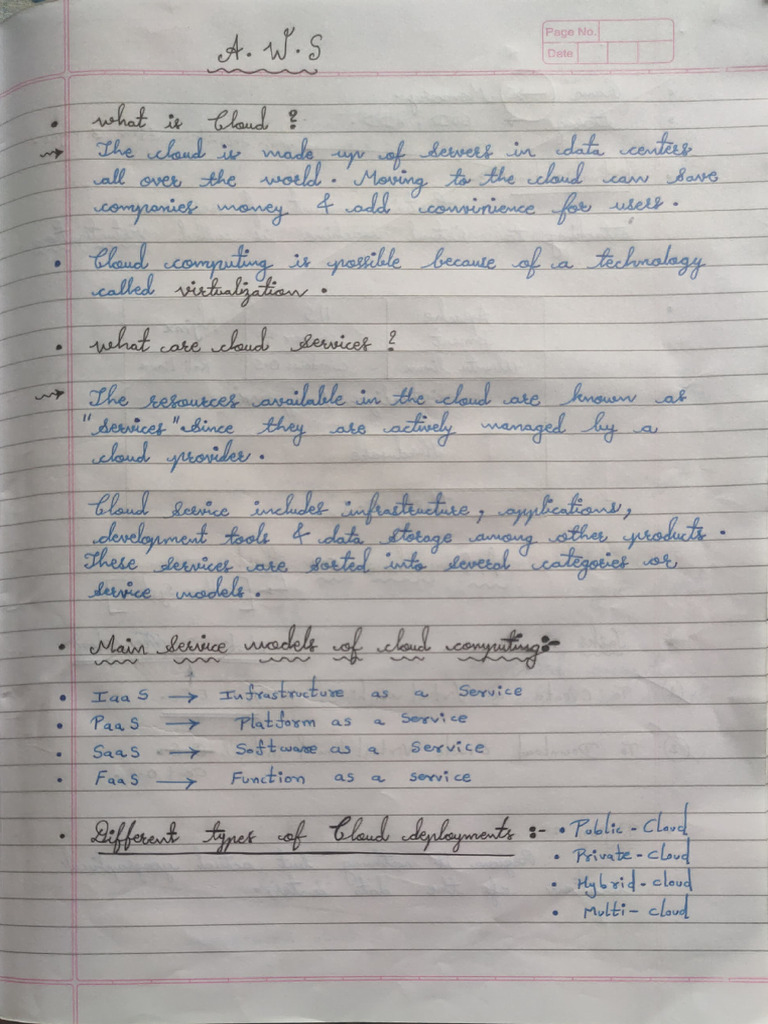 A. W. S
Page No.
Date
• What is Cloud ?
⇝ The cloud is made up of servers in data centers
all over the world. Moving to the cloud can save
companies money & add convinience for users.
• Cloud computing is possible because of a technology
called virtualization.
• What are cloud services ?
⇝ The resources available in the cloud are known as
"services" since they are actively managed by a
cloud provider.
Cloud service includes infrastructure, applications,
development tools & data storage among other products.
These services are sorted into several categories or
service models.
• Main service models of cloud computing:-
• IaaS → Infrastructure as a Service
• PaaS → Platform as a Service
• SaaS → Software as a Service
• FaaS → Function as a service
• Different types of Cloud deployments :- • Public-Cloud
• Private-cloud
• Hybrid-cloud
• Multi-cloud